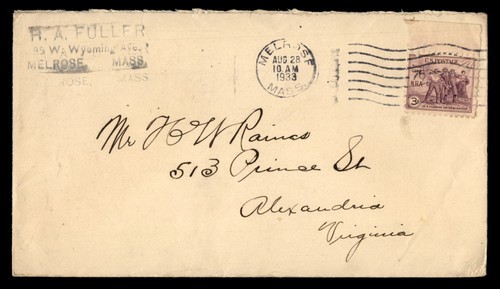 H. A. FULLER
45 W. Wyoming Ave.
MELROSE MASS.
ROSE, MASS.
MELROSE
AUG 28
10 AM
1933
MASS.
U.S. POSTAGE
NRA
3
Mr H W Raines
513 Prince St
Alexandria
Virginia